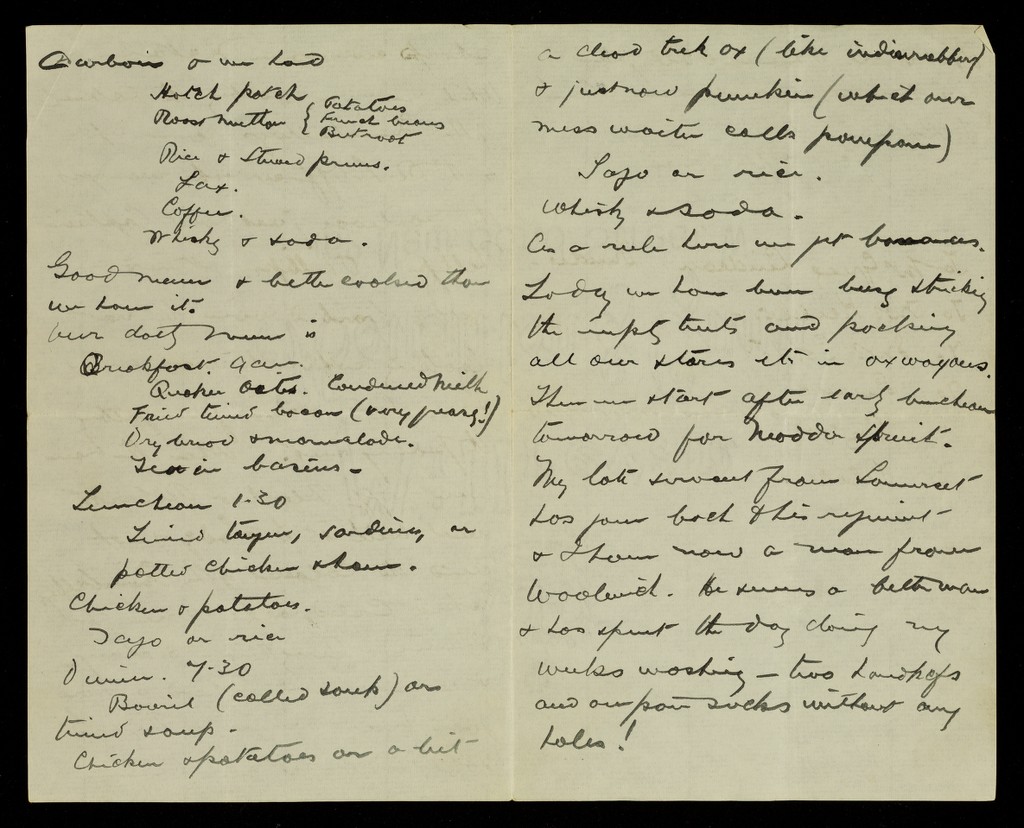 & we had
Hotch potch
Roast mutton { Potatoes
French beans
Beetroot
Rice & Stewed prunes.
Coffee.
Whisky & soda.
Good menu & better cooked than
we have it.
Our daily menu is
Breakfast. 9 am.
Quaker oats. Condensed milk
Fried tinned bacon (very greasy!)
Dry bread & marmalade.
Tea in basins.
Luncheon 1-30
Tinned tongue, sardines, or
potted chicken & ham.
Chicken & potatoes.
Sago or rice
Dinner. 7-30
Bovril (called soup) or
tinned soup.
Chicken & potatoes or a bit
a dead trek ox (like indiarubber)
& just now pumpkin (which our
mess waiter calls)
Sago or rice.
Whisky & soda.
As a rule here we get bananas.
Today we have been busy striking
the empty tents and packing
all our stores etc in oxwagons.
Then we start after early luncheon
tomorrow for Modder Spruit.
My late servant from Somerset
has gone back to his regiment
& I have now a man from
Woolwich. He seems a better man
& has spent the day doing my
weeks washing - two handkfs
and one pair socks without any
holes!